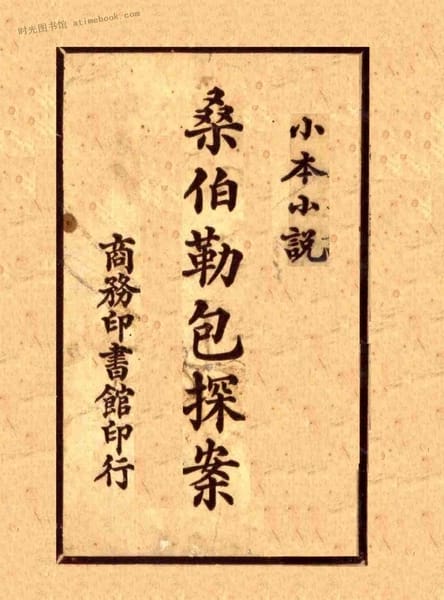 时光图书馆 atimebook.com
小本小説
桑伯勒包探案
商務印書館印行